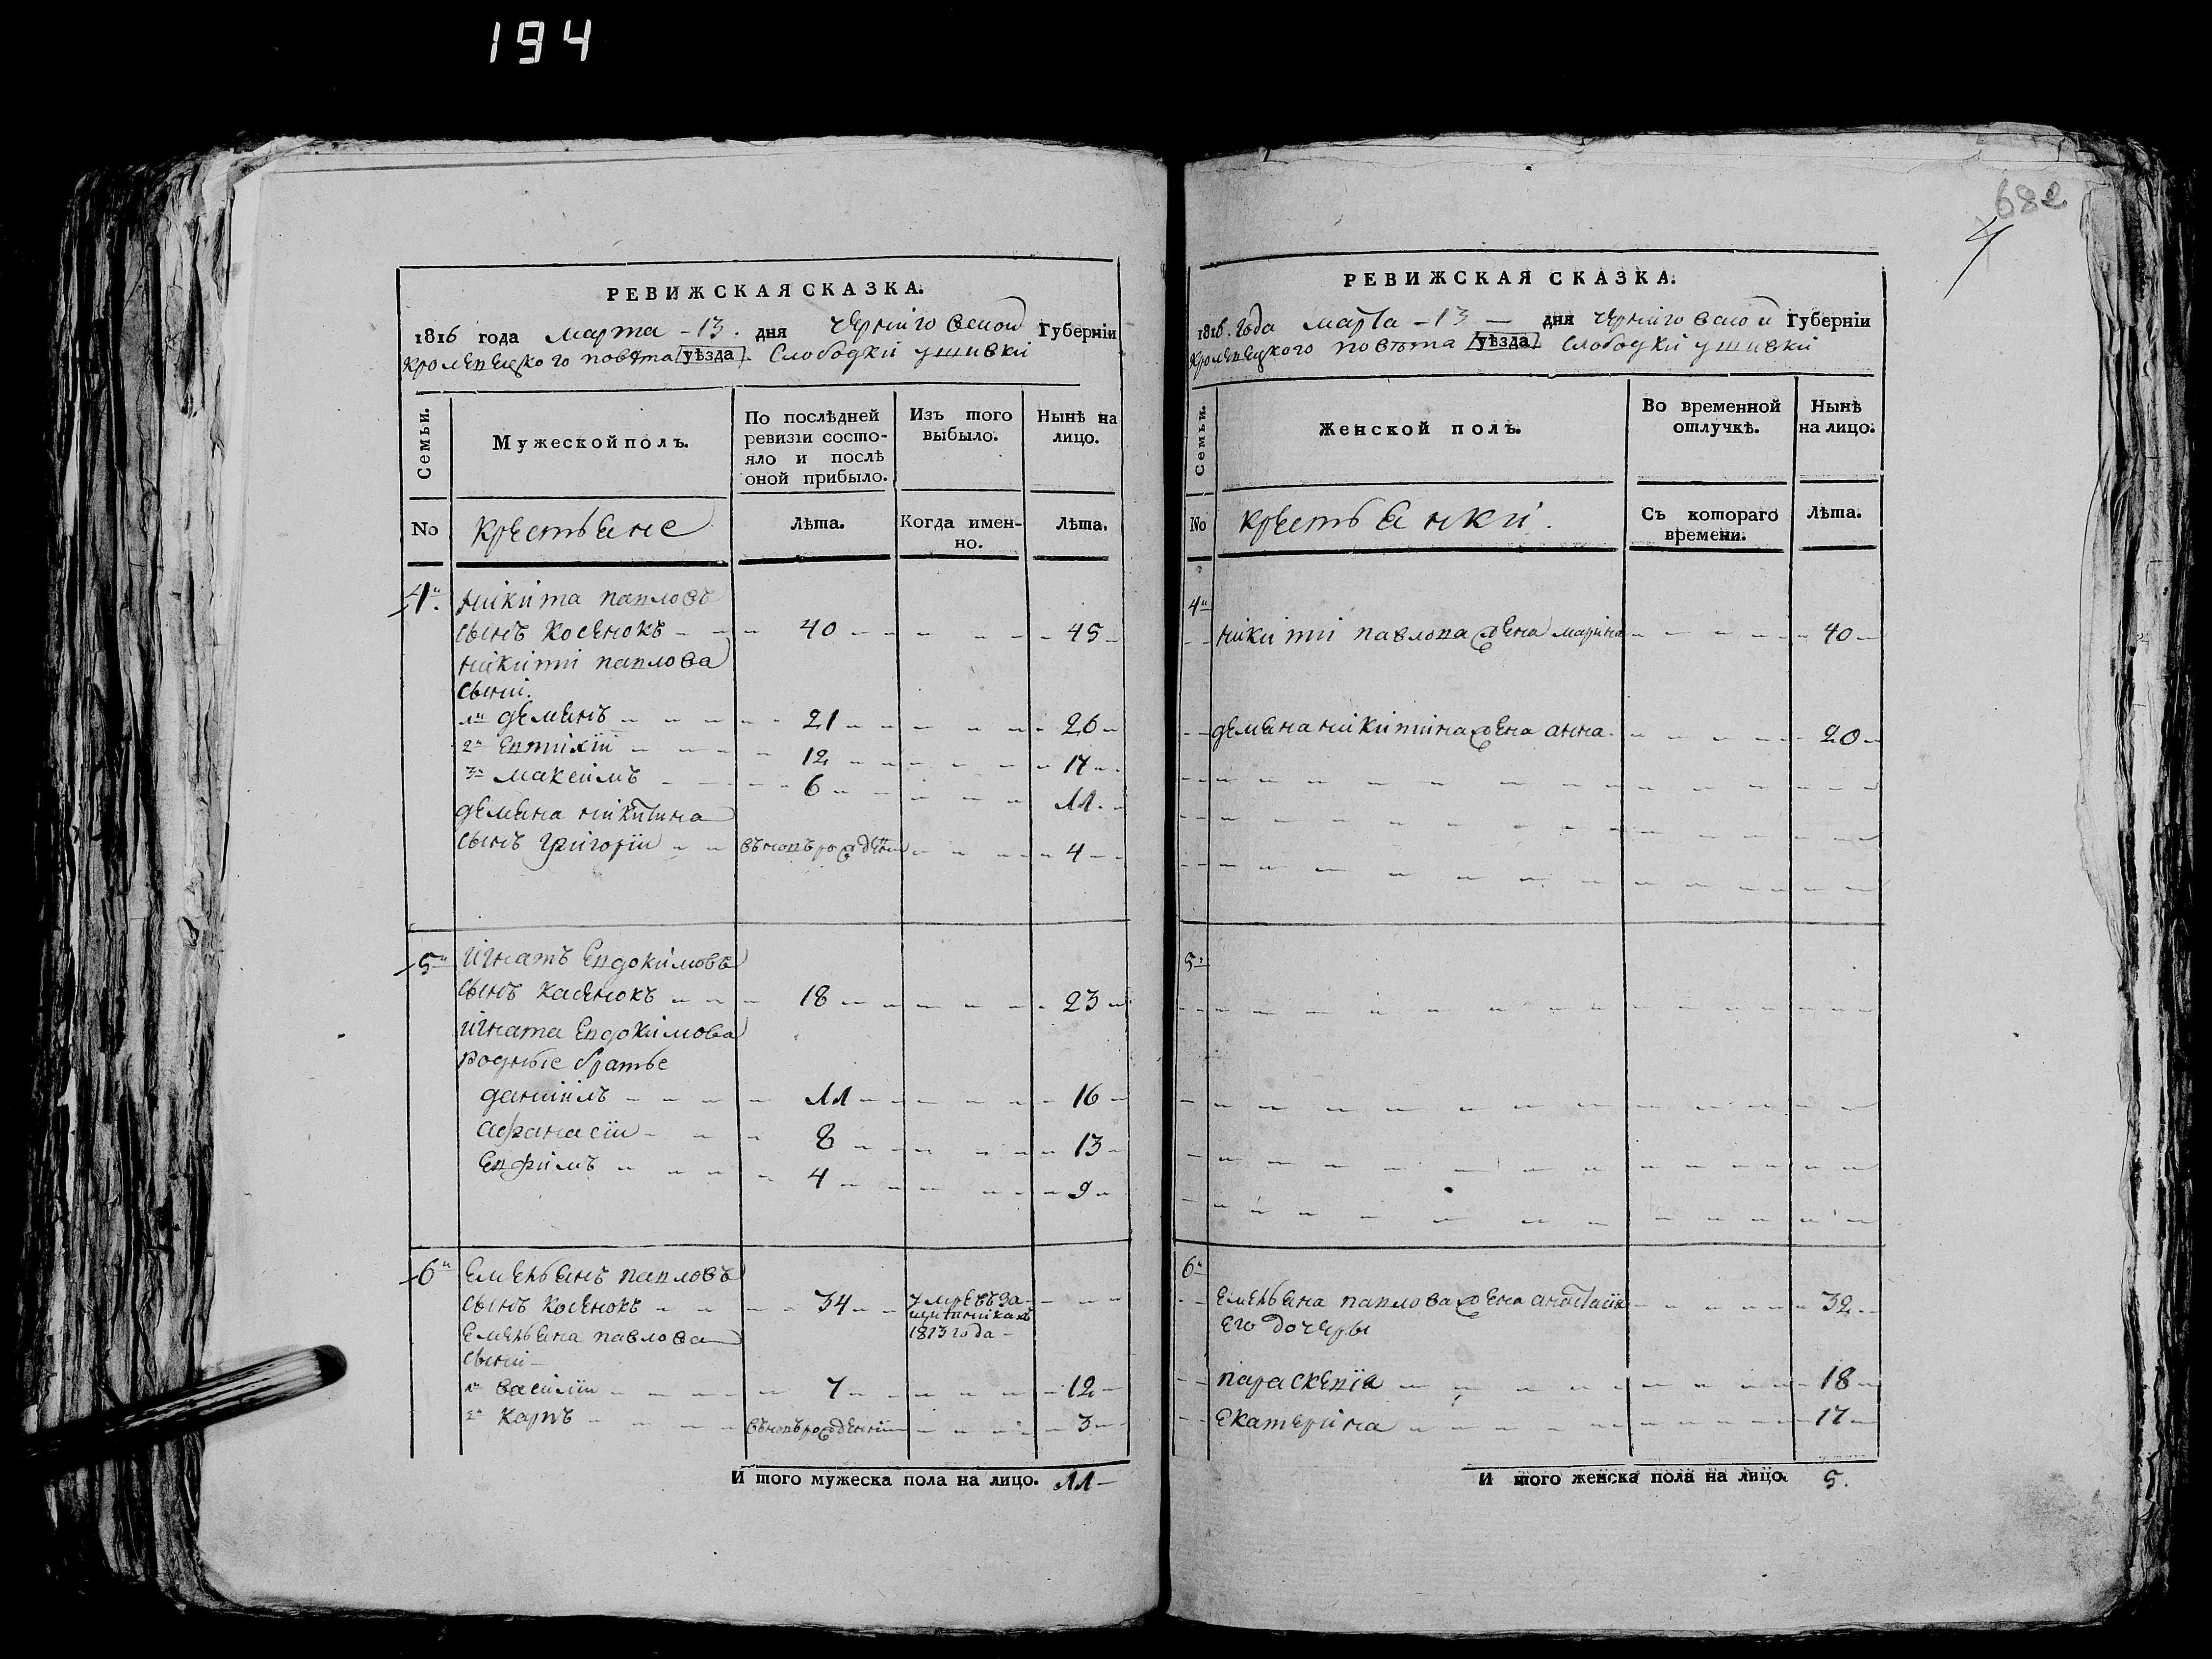 194
682
4
РЕВИЖСКАЯ СКАЗКА.
1816 года марта - 13. дня Черниговской Губерніи
Кролевецкого повѣта уѣзда. Слободки ушивки
Семьи.
Мужеской полъ.
По послѣдней ревизіи состояло и послѣ оной прибыло.
Изъ того выбыло.
Нынѣ на лицо.
No
крестьяне
Лѣта.
Когда именно.
Лѣта.
4й
никита павловъ
сынъ Косенокъ 40 45
никити павлова
сыни.
1й демянъ 21 26
2й Евтихїй 12 17
3й максимъ 6 11
демяна никитина
сынъ григорїй вновъ рожденъ 4
5й
игнатъ Евдокимовъ
сынъ касенокъ 18 23
игната Евдокимова
родные братье
данїилъ 11 16
афанасїй 8 13
Евфимъ 4 9
6й
Емельянъ павловъ
сынъ Косенокъ 34 умре въ защитникахъ 1813 года
Емельяна павлова
сыни
1й василїй 7 12
2й карпъ вновъ рожденнїй 3
И того мужеска пола на лицо. 11
РЕВИЖСКАЯ СКАЗКА.
1816. года марта - 13 дня Черниговской Губерніи
Кролевецкого повѣта уѣзда. Слободки ушивки
Семьи.
Женской полъ.
Во временной отлучкѣ.
Нынѣ на лицо.
No
крестьянки.
Съ котораго времени.
Лѣта.
4й
никити павлова жена марина 40
демяна никитина жена анна 20
5й
6й
Емельяна павлова жена анастасїя 32
Его дочеры
параскевїя 18
Екатерина 17
И того женска пола на лицо. 5.